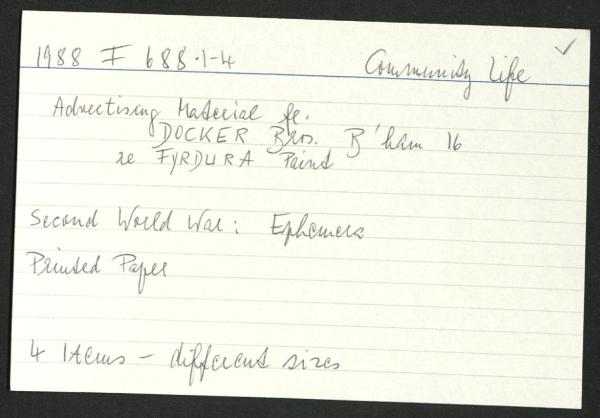 1988 F 688.1-4 Community Life ✓
Advertising Material fr.
DOCKER Bros. B'ham 16
re FYRDURA Paint
Second World War: Ephemera
Printed Paper
4 Items - different sizes